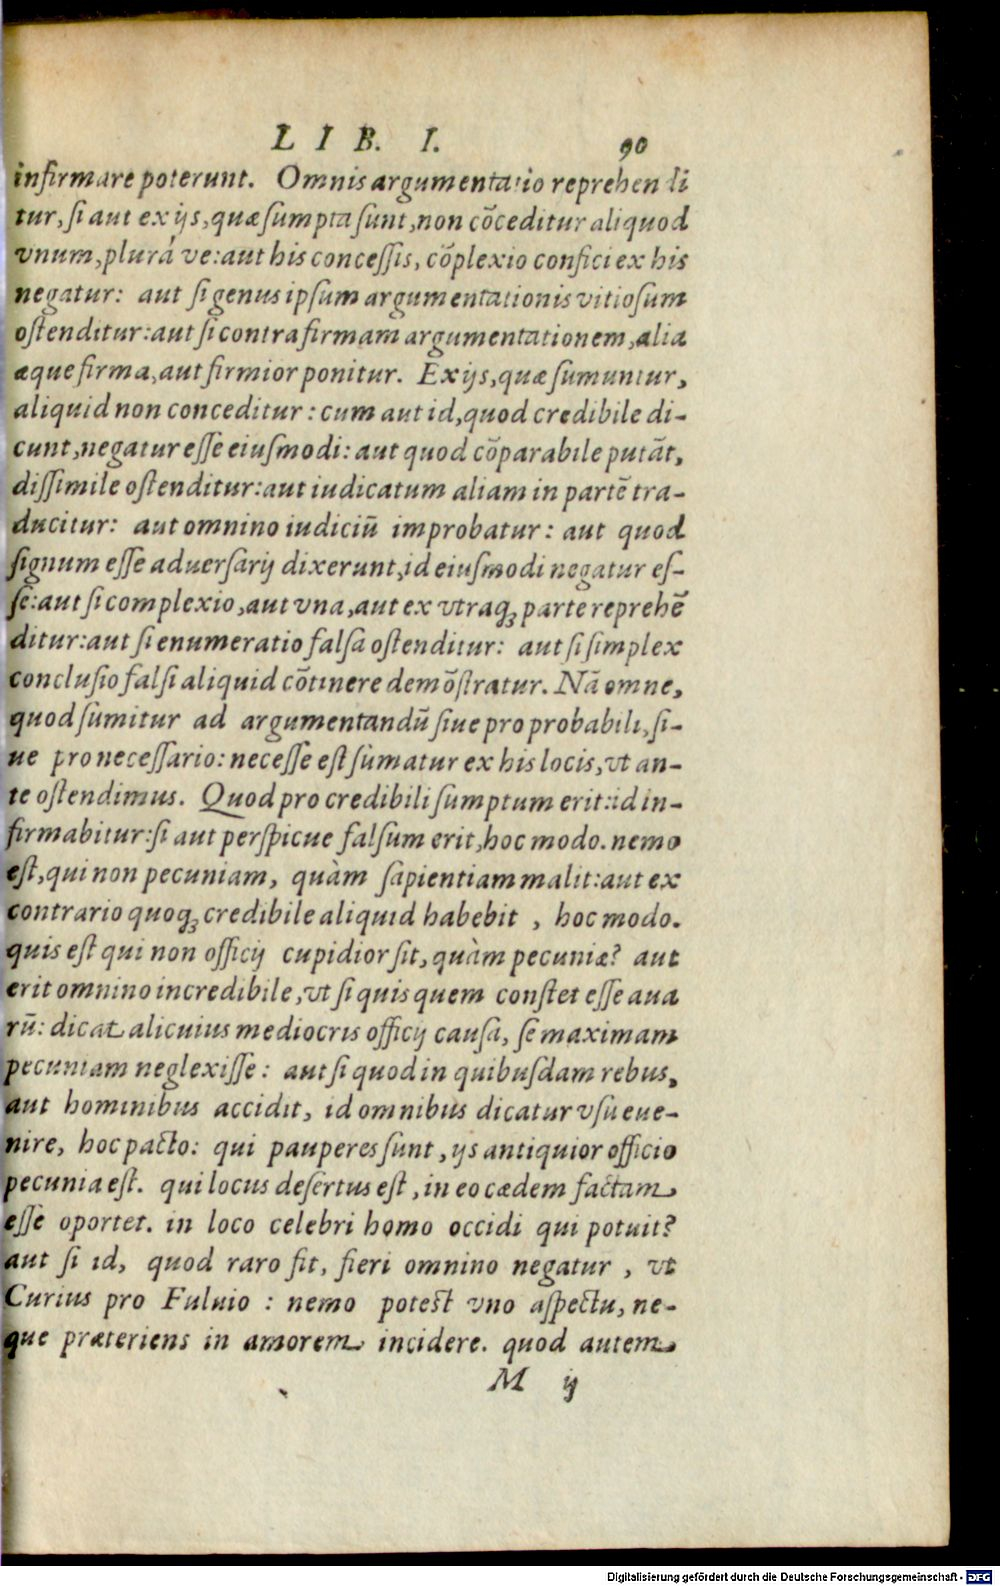 LIB. I. 90
infirmare poterunt. Omnis argumentatio reprehendi
tur, si aut ex ijs, quæ sumpta sunt, non cōceditur aliquod
vnum, plurá ve: aut his concessis, cōplexio confici ex his
negatur: aut si genus ipsum argumentationis vitiosum
ostenditur: aut si contra firmam argumentationem, alia
æque firma, aut firmior ponitur. Ex ijs, quæ sumuntur,
aliquid non conceditur: cum aut id, quod credibile di-
cunt, negatur esse eiusmodi: aut quod cōparabile putāt,
dissimile ostenditur: aut iudicatum aliam in partē tra-
ducitur: aut omnino iudiciū improbatur: aut quod
signum esse aduersarij dixerunt, id eiusmodi negatur es-
se: aut si complexio, aut vna, aut ex vtraqꝫ parte reprehē
ditur: aut si enumeratio falsa ostenditur: aut si simplex
conclusio falsi aliquid cōtinere demōstratur. Nā omne,
quod sumitur ad argumentandū siue pro probabili, si-
ue pro necessario: necesse est sumatur ex his locis, vt an-
te ostendimus. Quod pro credibili sumptum erit: id in-
firmabitur: si aut perspicue falsum erit, hoc modo. nemo
est, qui non pecuniam, quàm sapientiam malit: aut ex
contrario quoqꝫ credibile aliquid habebit, hoc modo.
quis est qui non officij cupidior sit, quàm pecuniæ? aut
erit omnino incredibile, vt si quis quem constet esse aua
rū: dicat alicuius mediocris officij causa, se maximam
pecuniam neglexisse: aut si quod in quibusdam rebus,
aut hominibus accidit, id omnibus dicatur vsu eue-
nire, hoc pacto: qui pauperes sunt, ijs antiquior officio
pecunia est. qui locus desertus est, in eo cædem factam
esse oportet. in loco celebri homo occidi qui potuit?
aut si id, quod raro fit, fieri omnino negatur, vt
Curius pro Fuluio: nemo potest vno aspectu, ne-
que præteriens in amorem incidere. quod autem
M ij
Digitalisierung gefördert durch die Deutsche Forschungsgemeinschaft - DFG